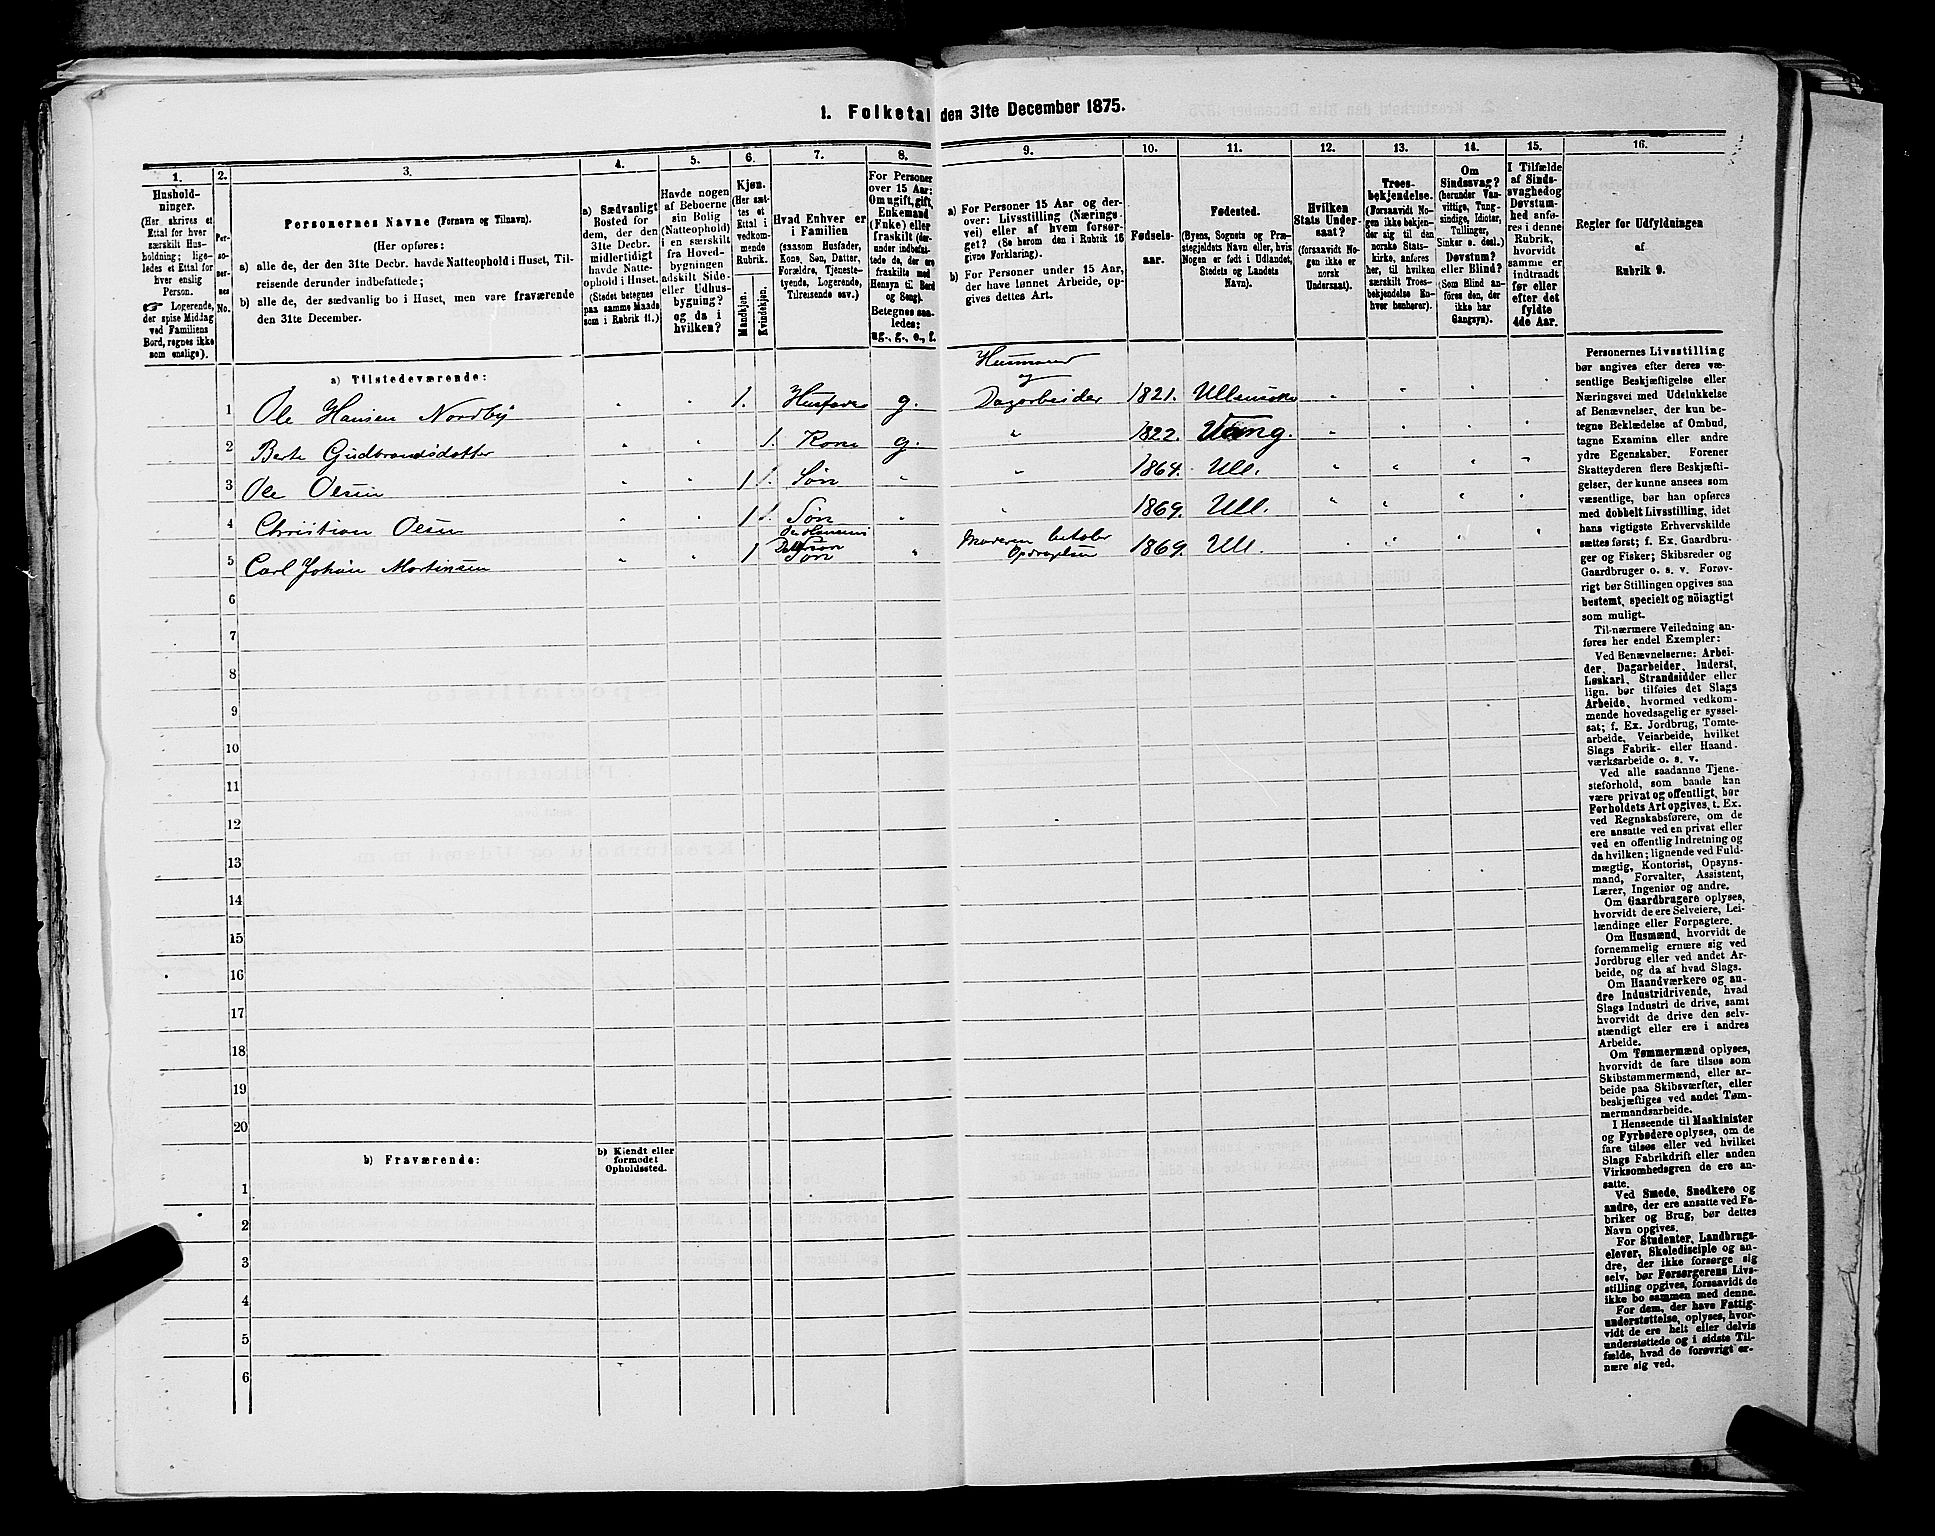 1. Folketal den 31te December 1875.
1.
Hushold-
ninger.
(Her skrives et
Ettal for hver
særskilt Hus-
holdning; lige-
ledes et Ettal for
hver enslig
Person.
Logerende,
der spise Middag
ved Familiens
Bord, regnes ikke
som enslige).
2.
Per-
so-
ner-
nes
No.
3.
Personernes Navne (Fornavn og Tilnavn).
(Her opføres:
a) alle de, der den 31te Decbr. havde Natteophold i Huset, Til-
reisende derunder indbefattede;
b) alle de, der sædvanlig bo i Huset, men vare fraværende
den 31te December.
4.
a) Sædvanligt
Bosted for
dem, der den
31te Decbr.
midlertidigt
havde Natte-
ophold i Huset.
(Stedet betegnes
paa samme Maade
som i Rubrik 11.)
5.
Havde nogen
af Beboerne
sin Bolig
(Natteophold)
i en særskilt
fra Hoved-
bygningen
adskilt Side-
eller Udhus-
bygning?
og da i
hvilken?
6.
Kjøn.
(Her sæt-
tes et
Ettal i
vedkom-
mende
Rubrik.
Mandkjøn.
Kvindekjøn.
7.
Hvad Enhver er
i Familien
(saasom Husfader,
Kone, Søn, Datter,
Forældre, Tjeneste-
tyende, Logerende,
Tilreisende osv.)
8.
For Personer
over 15 Aar:
Om ugift, gift,
Enkemand
(Enke) eller
fraskilt (der-
under indbefat-
tede de, der ere
fraskilte med
Hensyn til Bord
og Seng).
Betegnes saa-
ledes:
ug., g., e., f.
9.
a) For Personer 15 Aar og der-
over: Livsstilling (Nærings-
vei) eller af hvem forsør-
get? (Se herom den i Rubrik 16
givne Forklaring).
b) For Personer under 15 Aar,
der have lønnet Arbeide, op-
gives dettes Art.
10.
Fødsels-
aar.
11.
Fødested.
(Byens, Sognets og Præ-
stegjeldets Navn eller, hvis
Nogen er født i Udlandet,
Stedets og Landets
Navn).
12.
Hvilken
Stats Under-
saat?
(forsaavidt No-
gen ikke er
norsk
Undersaat).
13.
Troes-
bekjendelse.
(Forsaavidt No-
gen ikke bekjen-
der sig til den
norske Stats-
kirke, anføres
her, til hvilken
særskilt Troes-
bekjendelse En-
hver henhører).
14.
Om
Sindssvag?
(herunder Van-
vittige, Tung-
sindige, Idioter,
Tullinger,
Sinker o. desl.)
Døvstum?
eller Blind?
(Som Blind an-
føres den, der
ikke har
Gangsyn).
15.
I Tilfælde
af Sinds-
svaghed og
Døvstum-
hed anfø-
res i denne
Rubrik,
hvorvidt
samme er
indtraadt
før eller
efter det
fyldte
4de Aar.
16.
Regler for Udfyldningen
af
Rubrik 9.
a) Tilstedeværende:
1 Ole Hansen Nordby " " 1. Husfader g. Husmand og Dagarbeider 1821. Ullensaker " " " "
2 Berte Gudbrandsdatter " " 1. Kone g. " 1822. Vang. " " " "
3 Ole Olsen " " 1 1. Søn " " 1864. Ull. " " " "
4 Christian Olsen " " 1 1. Søn " " 1869. Ull. " " " "
5 Carl Johan Mortinsen " " 1 Søn " Moderen betaler 1869. Ull " " " "
6
7
8
9
10
11
12
13
14
15
16
17
18
19
20
b) Fraværende:
b) Kjendt eller
formodet
Opholdssted.
1
2
3
4
5
6
Personernes Livsstilling
bør angives efter deres væ-
sentlige Beskjæftigelse eller
Næringsvei med Udelukkelse
af Benævnelser, der kun be-
tegne Beklædelse af Ombud,
tagne Examina eller andre
ydre Egenskaber. Forener
Skatteyderen flere Beskjæfti-
gelser, der kunne ansees som
væsentlige, bør han opføres
med dobbelt Livsstilling, idet
hans vigtigste Erhvervskilde
sættes først; f. Ex. Gaardbru-
ger og Fisker; Skibsreder og
Gaardbruger o. s. v. Forøv-
rigt bør Stillingen opgives saa
bestemt, specielt og nöiagtigt
som muligt.
Til nærmere Veiledning an-
føres her endel Exempler:
Ved Benævnelserne: Arbei-
der, Dagarbeider, Inderst,
Løskarl, Strandsidder eller
lign. bør tilføies det Slags
Arbeide, hvormed vedkom-
mende hovedsagelig er syssel-
sat; f. Ex. Jordbrug, Tomte-
arbeide, Veiarbeide, hvilket
Slags Fabrik- eller Haand-
værksarbeide o. s. v.
Ved alle saadanne Tjene-
steforhold, som baade kan
være privat og offentligt, bør
Forholdets Art opgives, t. Ex.
ved Regnskabsførere, om de
ere ansatte ved en privat eller
ved en offentlig Indretning og
da hvilken; lignende ved Fuld-
mægtig, Kontorist, Opsyns-
mand, Forvalter, Assistent,
Lærer, Ingeniør og andre.
Om Gaardbrugere oplyses,
hvorvidt de ere Selveiere, Lei-
lændinge eller Forpagtere.
Om Husmænd, hvorvidt de
fornemmelig ernære sig ved
Jordbrug eller ved andet Ar-
beide, og da af hvad Slags.
Om Haandværkere og an-
dre Industridrivende, hvad
Slags Industri de drive, samt
hvorvidt de drive den selv-
stændigt eller ere i andres
Arbeide.
Om Tømmermænd oplyses,
hvorvidt de fare tilsøs som
Skibstømmermænd, eller ar-
beide paa Skibsværfter, eller
beskjæftiges ved andet Tøm-
mermandsarbeide.
I Henseende til Maskinister
og Fyrbødere oplyses, om de
fare tilsøs eller ved hvilket
Slags Fabrikdrift eller anden
Virksomhedsgren de ere an-
satte.
Ved Smede, Snedkere og
andre, der ere ansatte ved Fa-
briker og Brug, bør dettes
Navn opgives.
For Studenter, Landbrugs-
elever, Skoledisciple og an-
dre, der ikke forsørge sig
selv, bør Forsørgerens Livs-
stilling opgives, forsaavidt de
ikke bo sammen med denne.
For dem, der have Fattig-
understøttelse, oplyses, hvor-
vidt de ere helt eller delvis
understøttede og i sidste Til-
fælde, hvad de forøvrigt er-
nære sig ved.